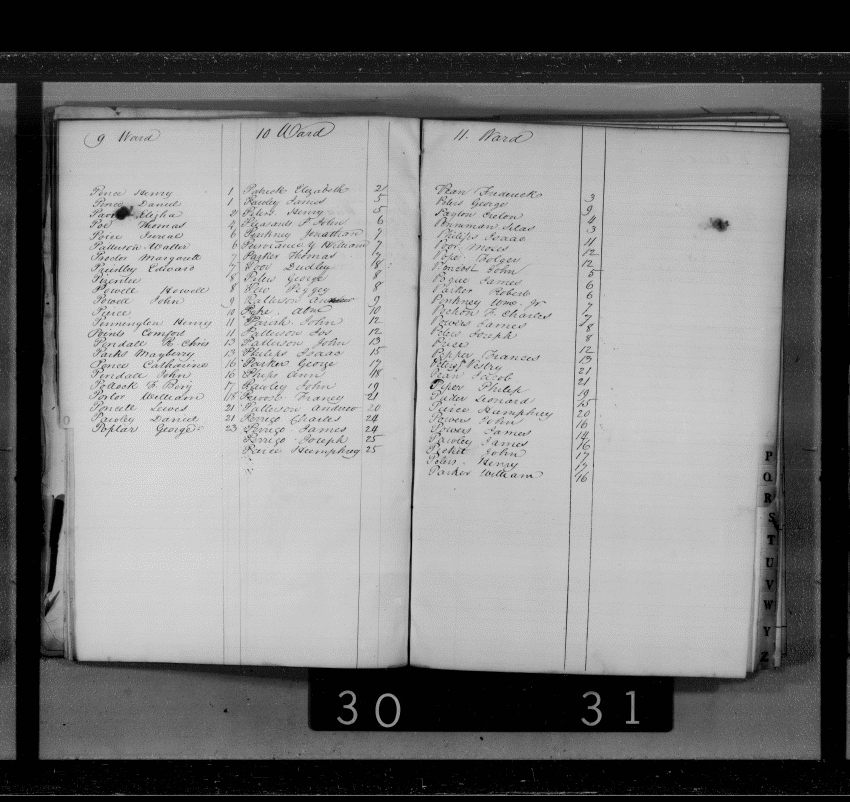 9 Ward
Pence Henry 1
Pence Daniel 1
Elijha 2
Poe Thomas 4
Poice 6
Patterson Walter 6
Proctor Margarett 7
Priestley Edward 7
8
Powell Howell 8
Powell John 9
Pierce 10
Pennington Henry 11
Points Comfort 11
Pendall R. Chris 13
Parks Mayberry 13
Pence Catharine 16
Pendall John 16
Pollock F. Benj 17
Porter William 18
Poncett Lewes 21
Pawley Daniel 21
Poplar George 23
10 Ward
Patrick Elizabeth 2
Pawley James 5
Peters Henry 5
Pleasants P. John 6
Pinkney Jonathan 7
Purviance Y William 7
Parker Thomas 7
Poor Dudley 8
Peters George 8
Peggy 8
Patterson Andrew 9
Pike 10
Parish John 12
Patterson Jos 12
Patterson John 13
Philips Isaac 15
Parker George 17
Phips Ann 18
Pawley John 19
Franey 21
Patterson Andrew 20
Perrigo Charles 24
Perrigo James 24
Perrigo Joseph 25
Parce Humphrey 25
11. Ward
Pean Frederick 3
Peters George 9
Payson 4
Penniman Silas 3
Philips Isaac 11
Poor Moses 12
Pope Folger 12
John 5
Pogue James 6
Parker Robert 6
Pinkney Wm. jr 7
Pochon F. Charles 7
Powers James 8
Peters Joseph 8
Peice 12
Popper Frances 13
21
Pean Jacob 21
Piper Philip 19
Leonard 15
Peirce Humphrey 20
Powers John 16
Powers James 14
Pawley James 16
John 17
Peters Henry 17
Parker William 16
P
Q
R
S
T
U
V
W
Y
Z
30 31